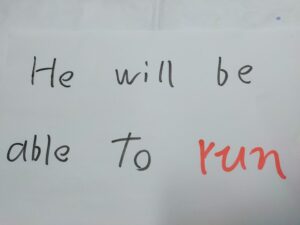 He will be
able To run